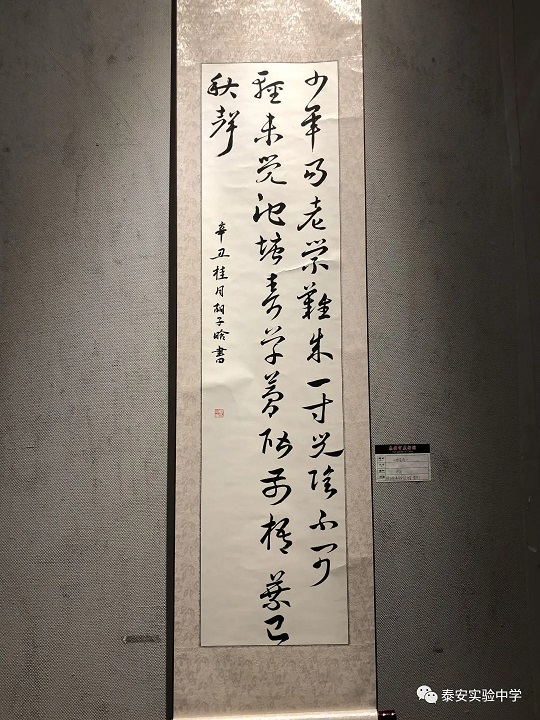 少年易老學難成一寸光陰不可
輕未覺池塘春草夢階前梧葉已
秋聲
辛丑桂月子晗書
泰安实验中学